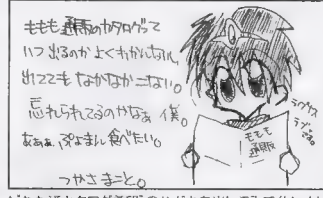 ももも通販のカタログって
いつ出るのかよくわかんないし、
出ててもなかなかこない。
忘れられてるのかなぁ 僕。
あああ、ぷよまん食べたい。
つかさまこと。
ももも
通販